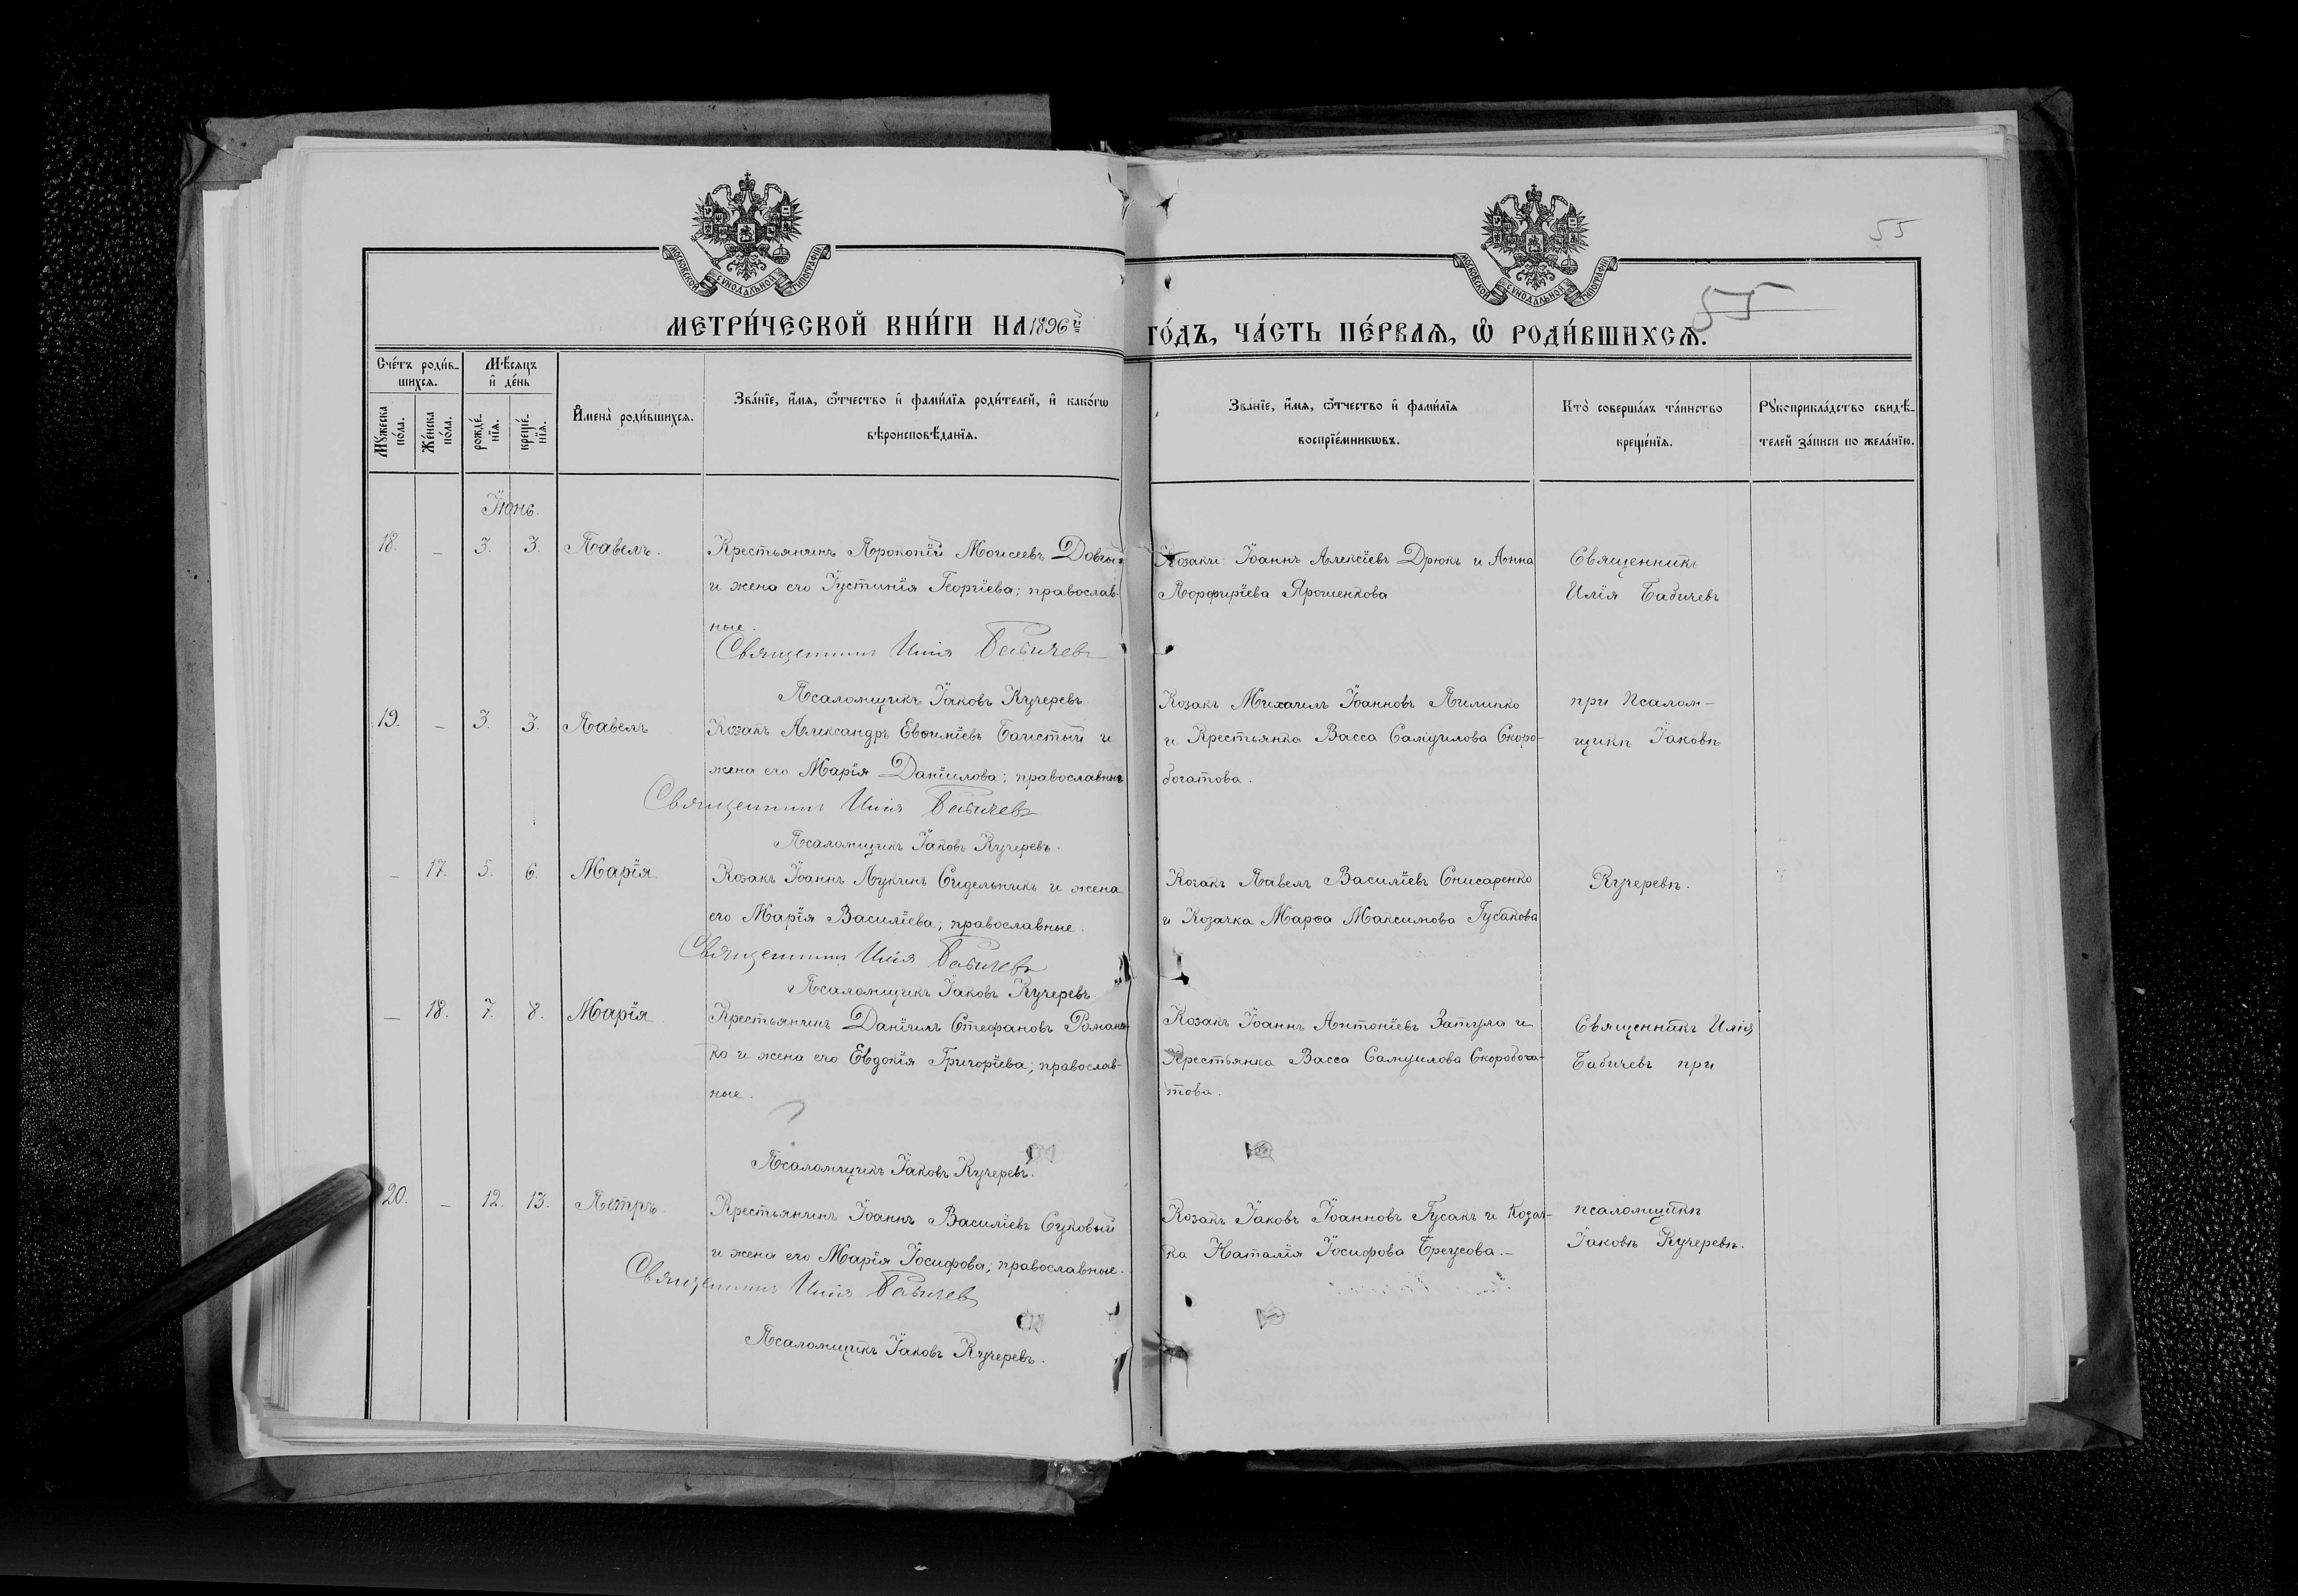 55
МОСКОВСКОЙ СѴНОДАЛЬНОЙ ТИПОГРАФІИ
МОСКОВСКОЙ СѴНОДАЛЬНОЙ ТИПОГРАФІИ
55
МЕТРИ́ЧЕСКОЙ КНИ́ГИ НА 1896й
ГО́ДЪ, ЧА́СТЬ ПЕ́РВАѦ, Ѿ РОДИ́ВШИХСѦ.
Сче́тъ роди́в-
шихсѧ.
Мѣ́сѧцъ
и҆ де́нь
Мꙋ́жеска
по́ла.
Же́нска
по́ла.
рожде́-
нїѧ.
креще́-
нїѧ.
И҆мена̀ роди́вшихсѧ.
Зва́нїе, и҆́мѧ, ѻ҆́тчество и҆ фами́лїѧ роди́телей, и҆ како́гѡ
вѣроисповѣ́данїѧ.
Зва́нїе, и҆́мѧ, ѻ҆́тчество и҆ фами́лїѧ
воспрїе́мникѡвъ.
Кто̀ соверша́лъ та́инство
креще́нїѧ.
Рꙋкоприкла́дство свидѣ́-
телей за́писи по жела́нїю.
Іюнь.
18. — 3. 3. Павелъ.
Крестьянинъ Прокопій Моисеевъ Довгый
и жена его Іустинія Георгіева; православ-
ные.
Священникъ Илія Бабичевъ
Псаломщикъ Іаковъ Кучеревъ.
Козаки: Іоаннъ Алексіевъ Дрюкъ и Анна
Порфиріева Ярошенкова
Священникъ
Илія Бабичевъ
19. — 3. 3. Павелъ
Козакъ Александръ Евѳиміевъ Баистый и
жена его Марія Даніилова; православные
Священникъ Илія Бабичевъ
Псаломщикъ Іаковъ Кучеревъ.
Козакъ Михаилъ Іоанновъ Пилипко
и Крестьянка Васса Самуилова Скоро-
богатова.
при Псалом-
щикѣ Іаковѣ
— 17. 5. 6. Марія
Козакъ Іоаннъ Лукинъ Сидельникъ и жена
его Марія Василіева; православные.
Священникъ Илія Бабичевъ
Псаломщикъ Іаковъ Кучеревъ.
Козакъ Павелъ Василіевъ Снисаренко
и Козачка Марѳа Максимова Гусакова
Кучеревѣ.
— 18. 7. 8. Марія
Крестьянинъ Даніилъ Стефановъ Романен-
ко и жена его Евдокія Григоріева; православ-
ные.
Псаломщикъ Іаковъ Кучеревъ.
Козакъ Іоаннъ Антоніевъ Затула и
Крестьянка Васса Самуилова Скоробога-
това.
Священникъ Илія
Бабичевъ при
20. — 12. 13. Петръ.
Крестьянинъ Іоаннъ Василіевъ Суковый
и жена его Марія Іосифова; православные.
Священникъ Илія Бабичевъ
Псаломщикъ Іаковъ Кучеревъ.
Козакъ Іаковъ Іоанновъ Гусакъ и Козач-
ка Наталія Іосифова Бреусова.—
псаломщикѣ
Іаковѣ Кучеревѣ.